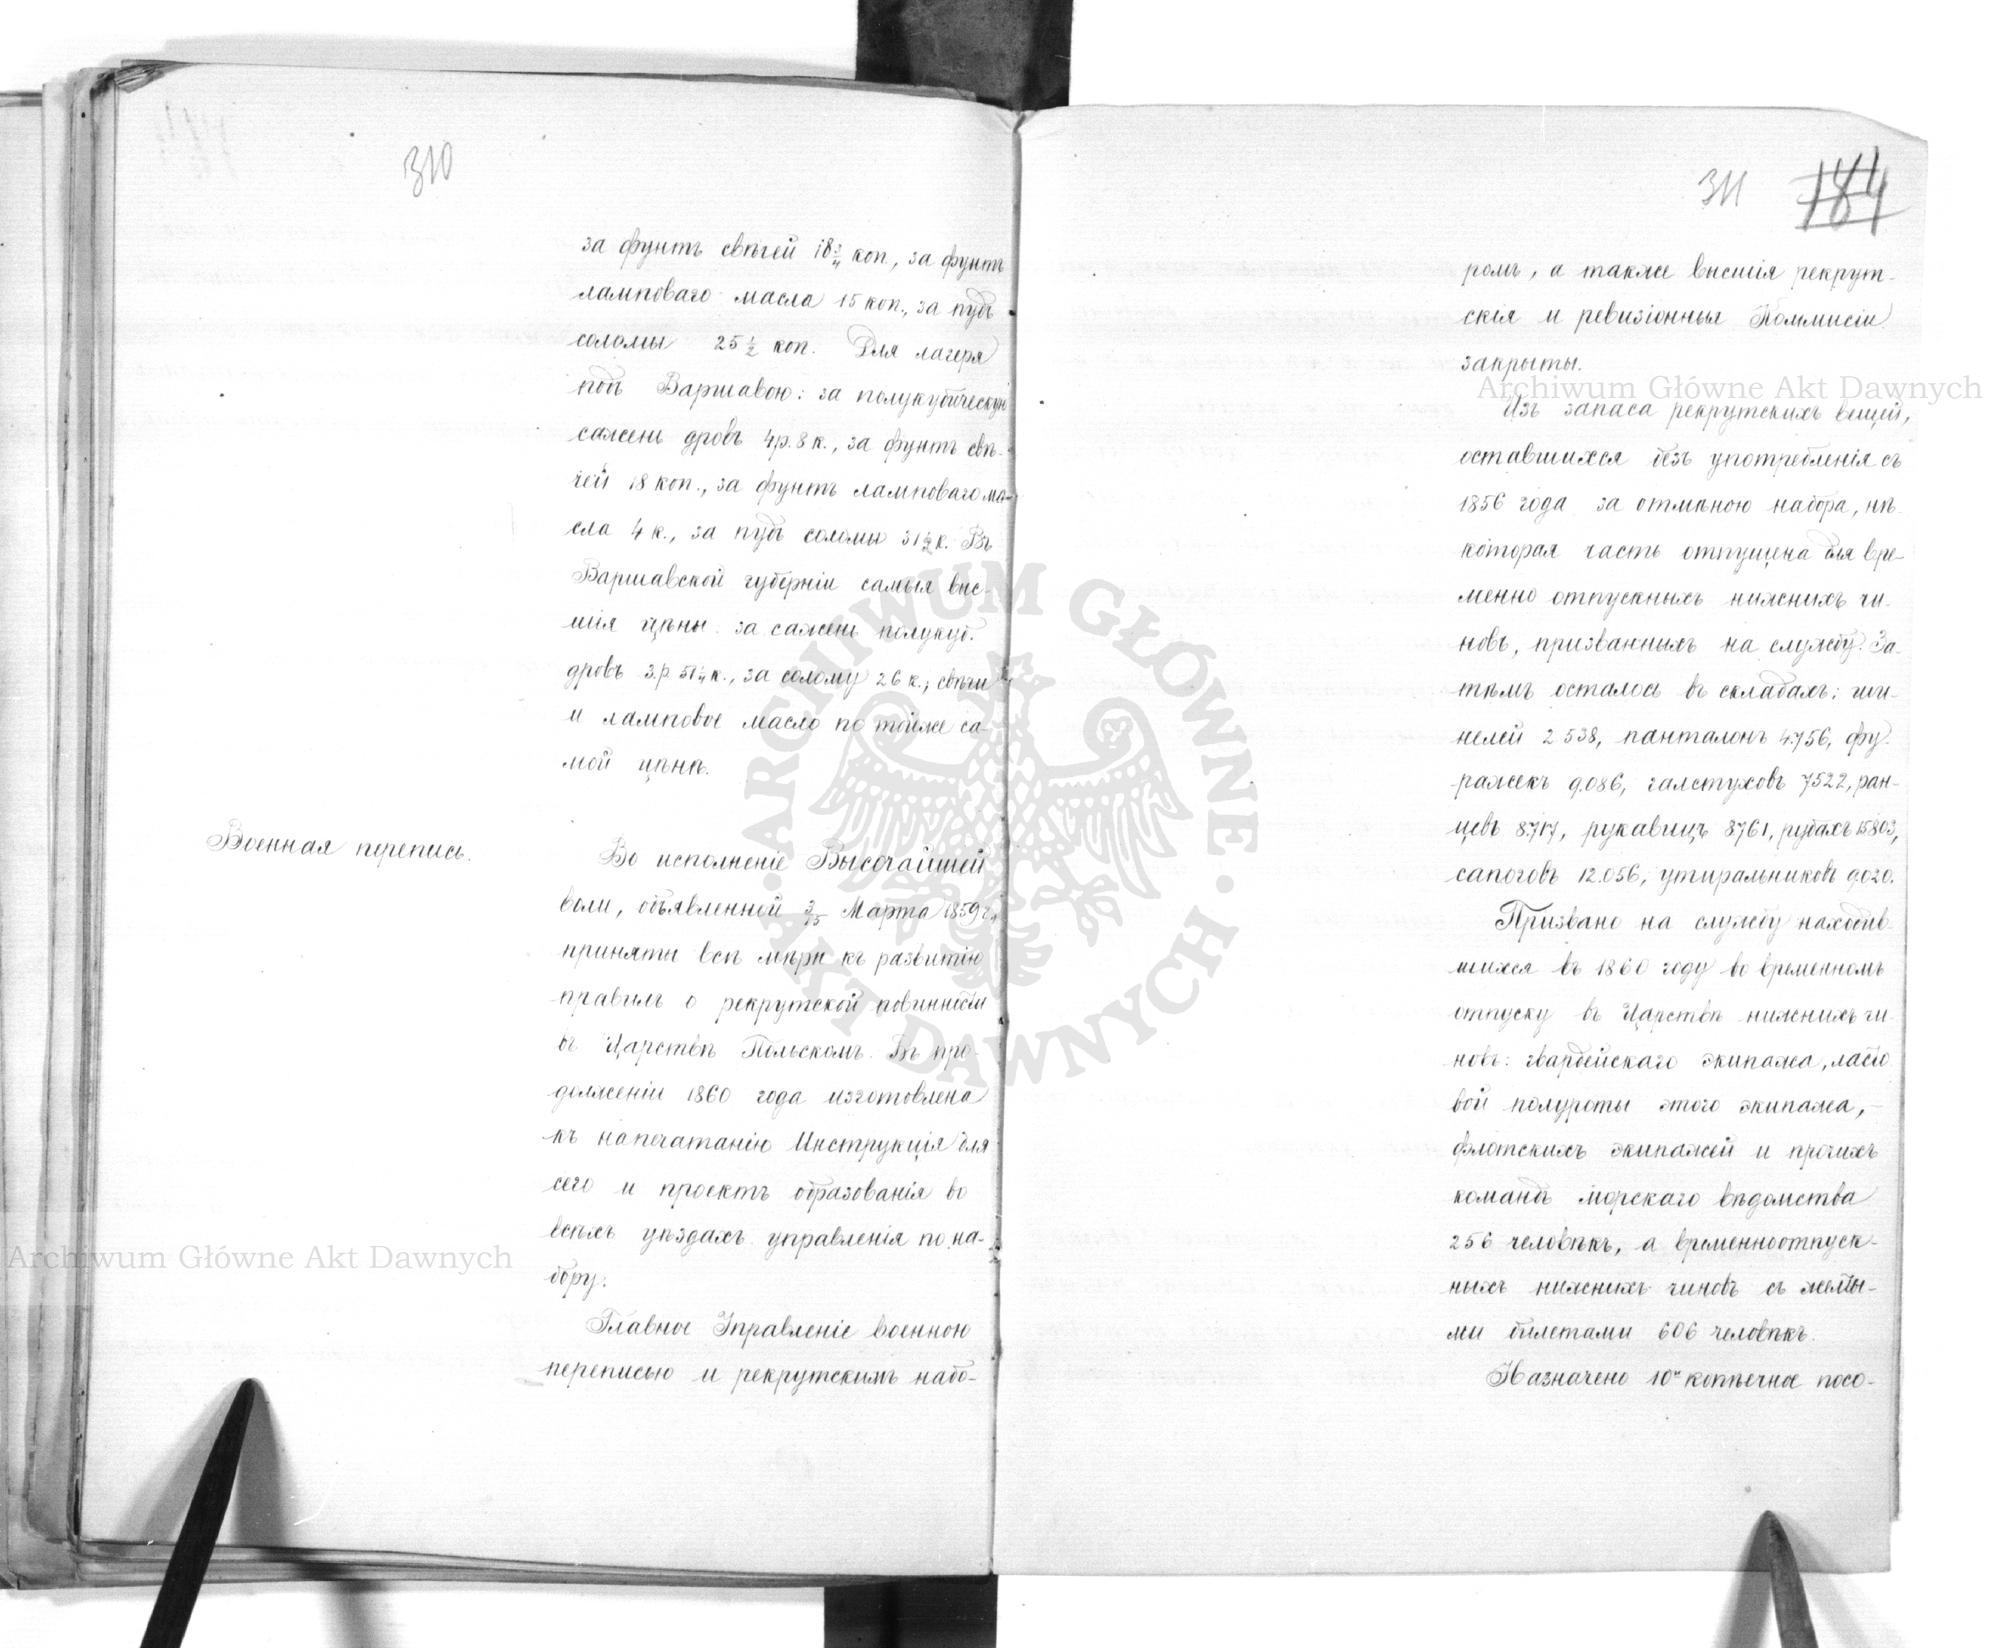 310
за фунтъ свѣчей 18 3/4 коп., за фунтъ
ламповаго масла 15 коп., за пудъ
соломы 25 1/2 коп. Для лагеря
подъ Варшавою: за полукубическую
сажень дровъ 4 р. 8 к., за фунтъ свѣ-
чей 18 коп., за фунтъ ламповаго ма-
сла 4 к., за пудъ соломы 31 1/2 к. Въ
Варшавской губерніи самыя выс-
шія цѣны: за сажень полукуб.
дровъ 3 р. 51 1/4 к., за солому 26 к.; свѣчи
и ламповое масло по тойже са-
мой цѣнѣ.
Военная перепись.
Во исполненіе Высочайшей
воли, объявленной 3/15 Марта 1859 г.,
приняты всѣ мѣры къ развитію
правилъ о рекрутской повинности
въ Царствѣ Польскомъ. Въ про-
долженіи 1860 года изготовлена
къ напечатанію Инструкція для
сего и проектъ образованія во
всѣхъ уѣздахъ управленія по на-
бору.
Главное Управленіе военною
переписью и рекрутскимъ набо-
311 184
ромъ, а также высшія рекрут-
скія и ревизіонныя Коммисіи
закрыты.
Изъ запаса рекрутскихъ вещей,
оставшихся безъ употребленія съ
1856 года за отмѣною набора, нѣ-
которая часть отпущена для вре-
менно отпускныхъ нижнихъ чи-
новъ, призванныхъ на службу. За-
тѣмъ осталось въ складахъ: ши-
нелей 2538, панталонъ 4.756, фу-
ражекъ 9.086, галстуховъ 7522, ран-
цевъ 8.717, рукавицъ 8761, рубахъ 15803,
сапоговъ 12.056, утиральниковъ 9020.
Призвано на службу находив-
шихся въ 1860 году во временномъ
отпуску въ Царствѣ нижнихъ чи-
новъ: гвардейскаго экипажа, ласто-
вой полуроты этого экипажа, -
флотскихъ экипажей и прочихъ
командъ морскаго вѣдомства
256 человѣкъ, а временноотпуск-
ныхъ нижнихъ чиновъ съ желты-
ми билетами 606 человѣкъ.
Назначено 10и копѣечное посо-
Archiwum Główne Akt Dawnych
Archiwum Główne Akt Dawnych
ARCHIWUM GŁÓWNE
AKT DAWNYCH